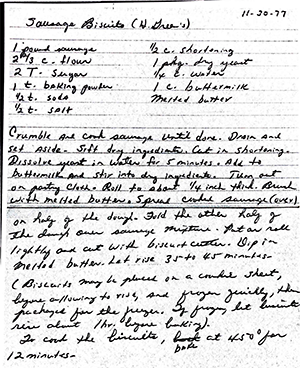 11-20-77
Sausage Biscuits (N. Gree's)
1 pound sausage ½ c. shortening
2 ⅔ c. flour 1 pkg. dry yeast
2 T. sugar ¼ c. water
1 t. baking powder 1 c. buttermilk
½ t. soda melted butter
½ t. salt
Crumble and cook sausage until done. Drain and
set aside. Sift dry ingredients. Cut in shortening.
Dissolve yeast in water for 5 minutes. Add to
buttermilk and stir into dry ingredients. Turn out
on pastry cloth. Roll to about ¼ inch thick. Brush
with melted butter. Spread cooked sausage (over)
on half of the dough. Fold the other half of
the dough over sausage mixture. Pat or roll
lightly and cut with biscuit cutter. Dip in
melted butter. Let rise 35 to 45 minutes-
(Biscuits may be placed on a cookie sheet,
before allowing to rise, and frozen quickly, then
packaged for the freezer. If frozen, let biscuits
rise about 1 hr. before baking).
To cook the biscuits, bake at 450° for
12 minutes-